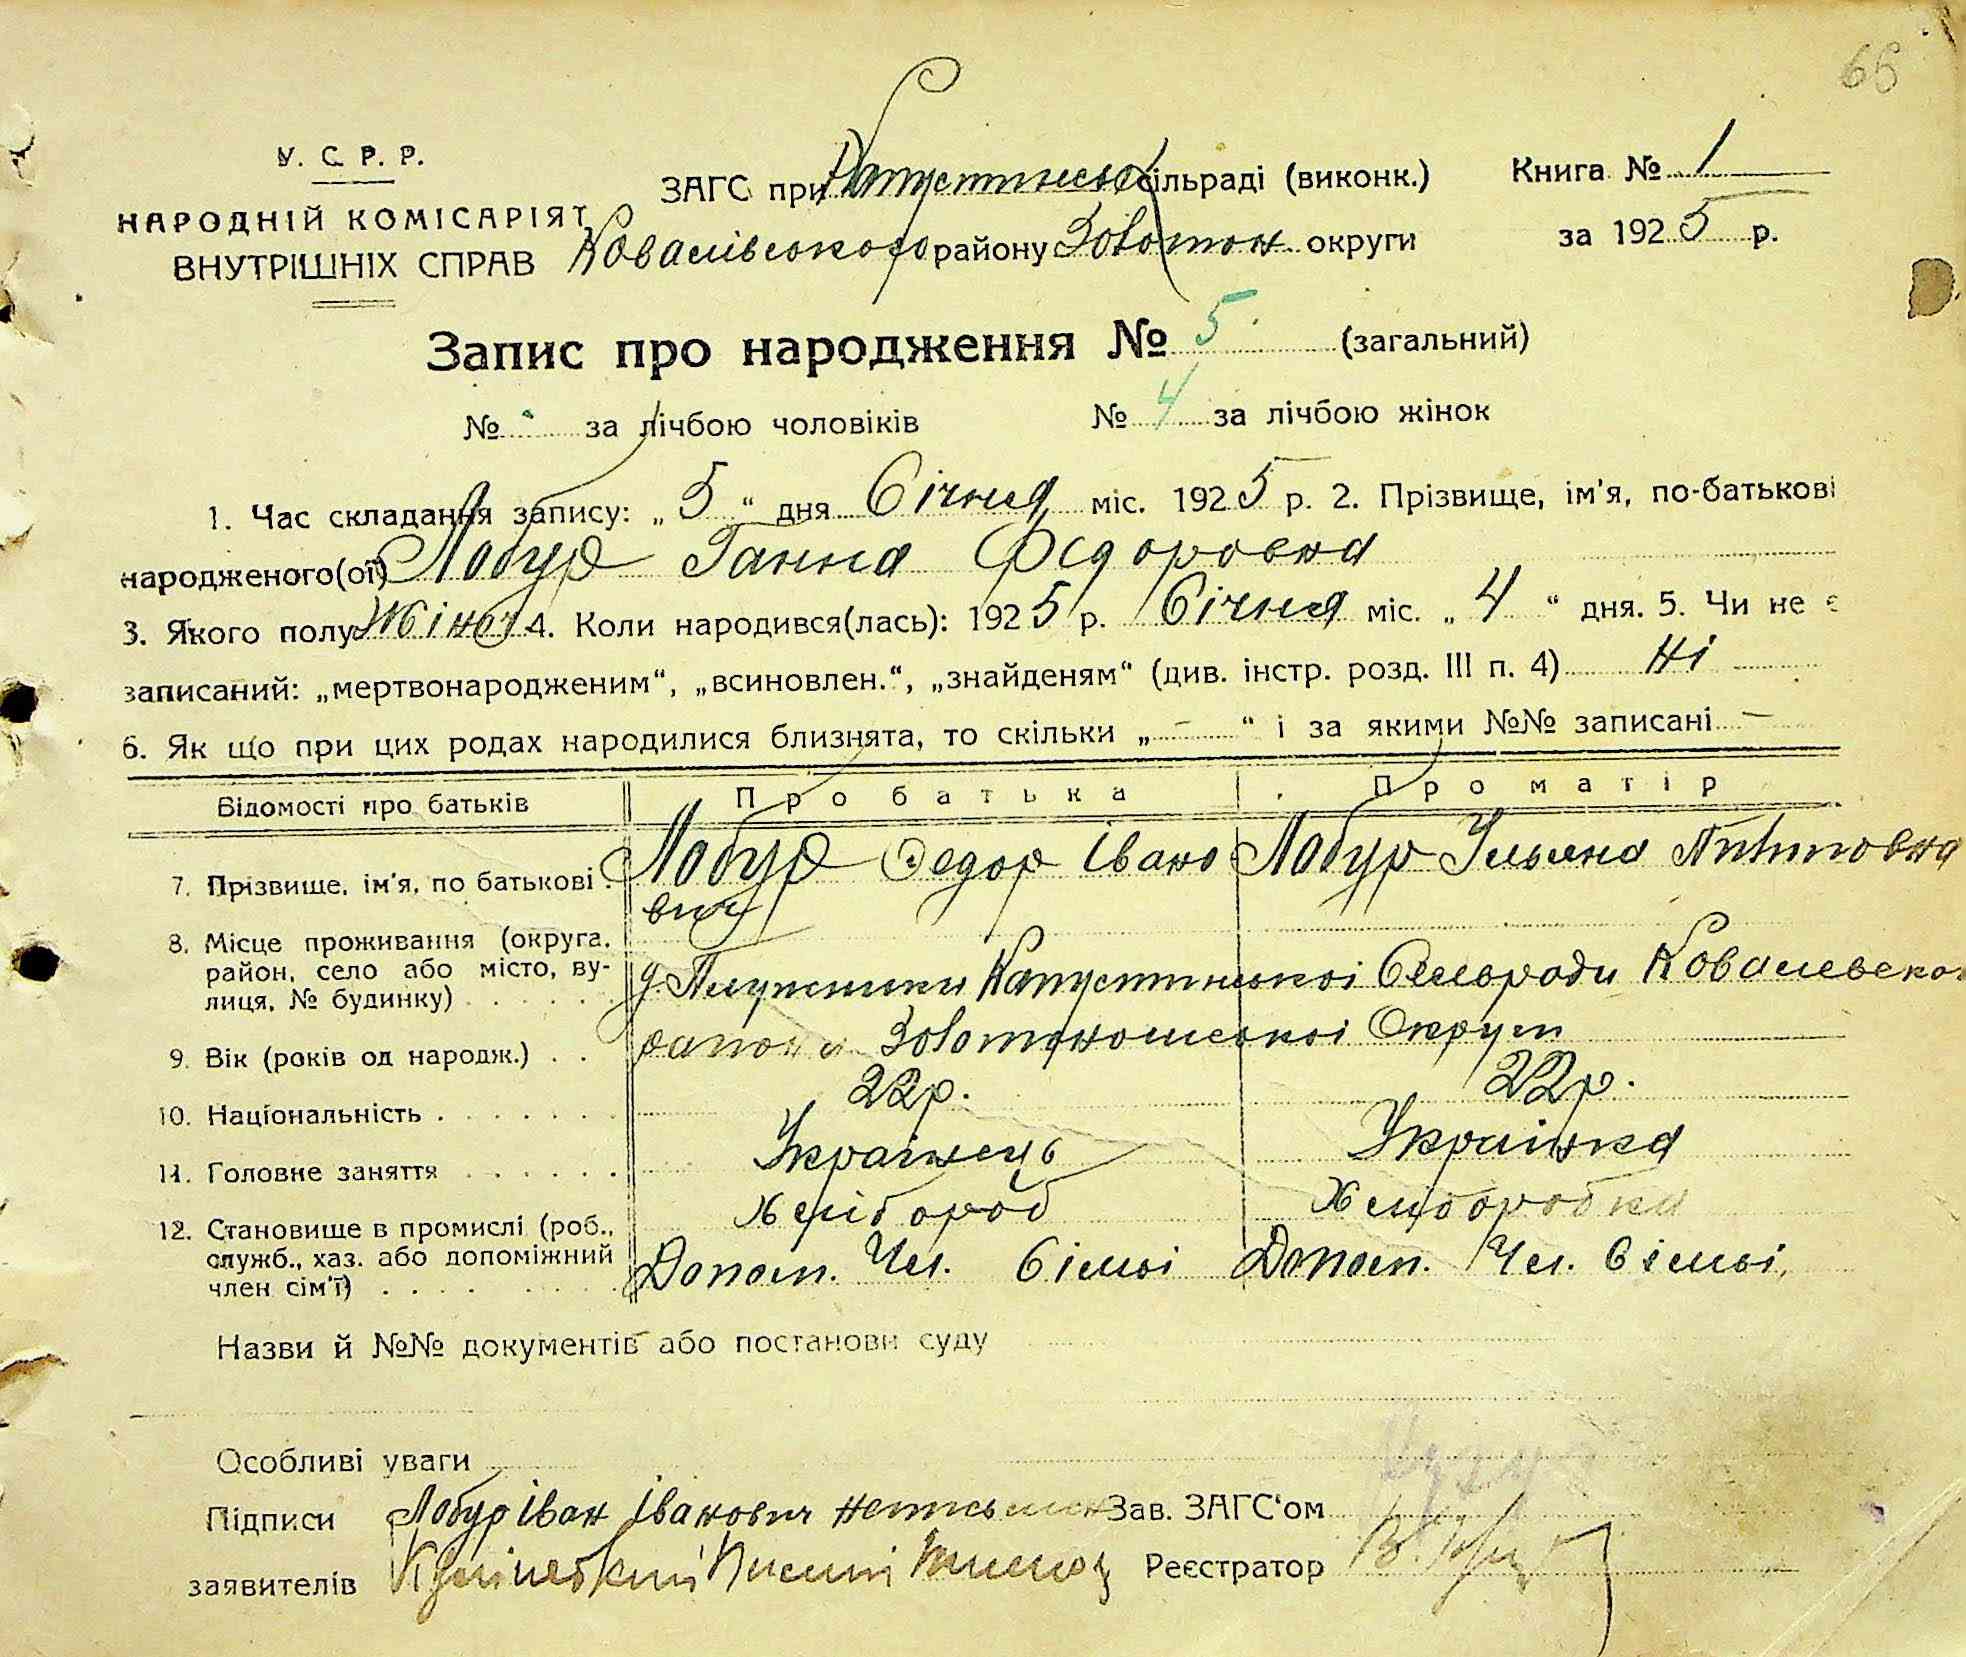 66
У. С. Р. Р.
НАРОДНІЙ КОМІСАРІЯТ
ВНУТРІШНІХ СПРАВ
ЗАГС при Капустинськ сільраді (виконк.)
Ковалівського району Золотон. округи
Книга № 1
за 1925 р.
Запис про народження № 5. (загальний)
№ за лічбою чоловіків № 4 за лічбою жінок
1. Час складання запису: „5“ дня Січня міс. 1925 р. 2. Прізвище, ім'я, по-батькові
народженого(ої) Лобур Ганна Федоровна
3. Якого полу Жіноч 4. Коли народився(лась): 1925 р. Січня міс. „4“ дня. 5. Чи не є
записаний: „мертвонародженим“, „всиновлен.“, „знайденям“ (див. інстр. розд. III п. 4) Ні
6. Як що при цих родах народилися близнята, то скільки „—“ і за якими №№ записані —
Відомості про батьків Про батька Про матір
7. Прізвище, ім'я, по батькові. Лобур Федор Івано Лобур Ульяна
вич
8. Місце проживання (округа, район, село або місто, вулиця, № будинку) Капустинськоі Сельроди Ковалевско
района Золотоношськоі Округи
9. Вік (років од народж.) 22р. 22р.
10. Національність Українець Українка
11. Головне заняття Хлібороб Хлиборобка
12. Становище в промислі (роб., служб., хаз. або допоміжний член сім'ї) Допом. Чл. Сімьі Допом. Чл. Сімьі
Назви й №№ документів або постанови суду
Особливі уваги
Підписи Лобур Іван Іванович Зав. ЗАГС'ом
заявителів Реєстратор